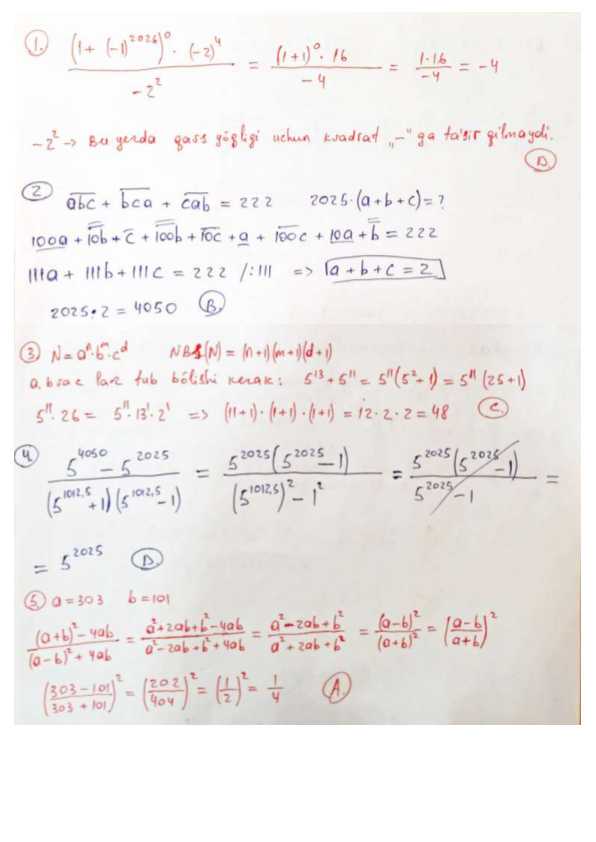 1. (1 + (-1)²⁰²⁶)⁰ · (-2)⁴ / -2² = (1+1)⁰ · 16 / -4 = 1·16 / -4 = -4
-2² → Bu yerda qavs yo'qligi uchun kvadrat „-" ga ta'sir qilmaydi.
D.
2 abc + bca + cab = 222 2025·(a+b+c) = ?
100a + 10b + c + 100b + 10c + a + 100c + 10a + b = 222
111a + 111b + 111c = 222 /:111 => a + b + c = 2
2025·2 = 4050 B.
3 N = aⁿ·bᵐ·cᵈ NBS(N) = (n+1)(m+1)(d+1)
a, b va c lar tub bo'lishi kerak: 5¹³ + 5¹¹ = 5¹¹(5²+1) = 5¹¹(25+1)
5¹¹·26 = 5¹¹·13¹·2¹ => (11+1)·(1+1)·(1+1) = 12·2·2 = 48 C.
4 5⁴⁰⁵⁰ - 5²⁰²⁵ / (5^1012,5 + 1)(5^1012,5 - 1) = 5²⁰²⁵(5²⁰²⁵ - 1) / (5^1012,5)² - 1² = 5²⁰²⁵(5²⁰²⁵ - 1) / 5²⁰²⁵ - 1 =
= 5²⁰²⁵ D.
5. a = 303 b = 101
(a+b)² - 4ab / (a-b)² + 4ab = a² + 2ab + b² - 4ab / a² - 2ab + b² + 4ab = a² - 2ab + b² / a² + 2ab + b² = (a-b)² / (a+b)² = (a-b / a+b)²
(303 - 101 / 303 + 101)² = (202 / 404)² = (1/2)² = 1/4 A.